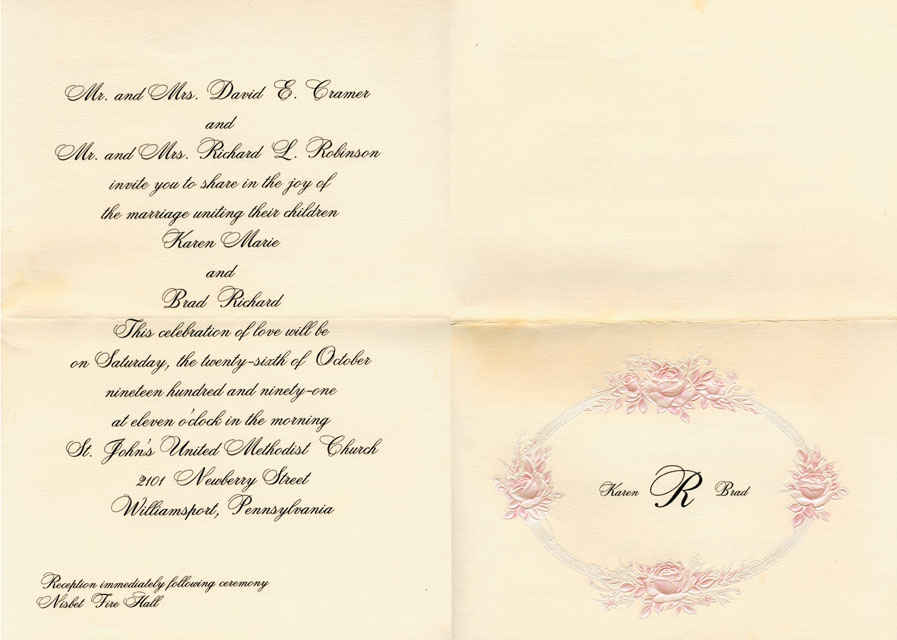 Mr. and Mrs. David E. Cramer
and
Mr. and Mrs. Richard L. Robinson
invite you to share in the joy of
the marriage uniting their children
Karen Marie
and
Brad Richard
This celebration of love will be
on Saturday, the twenty-sixth of October
nineteen hundred and ninety-one
at eleven o'clock in the morning
St. John's United Methodist Church
2101 Newberry Street
Williamsport, Pennsylvania
Reception immediately following ceremony
Nisbet Fire Hall
Karen R Brad